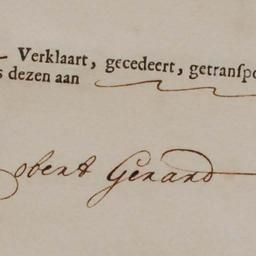 Verklaart, gecedeert, getranspo
s dezen aan
obert Gerard